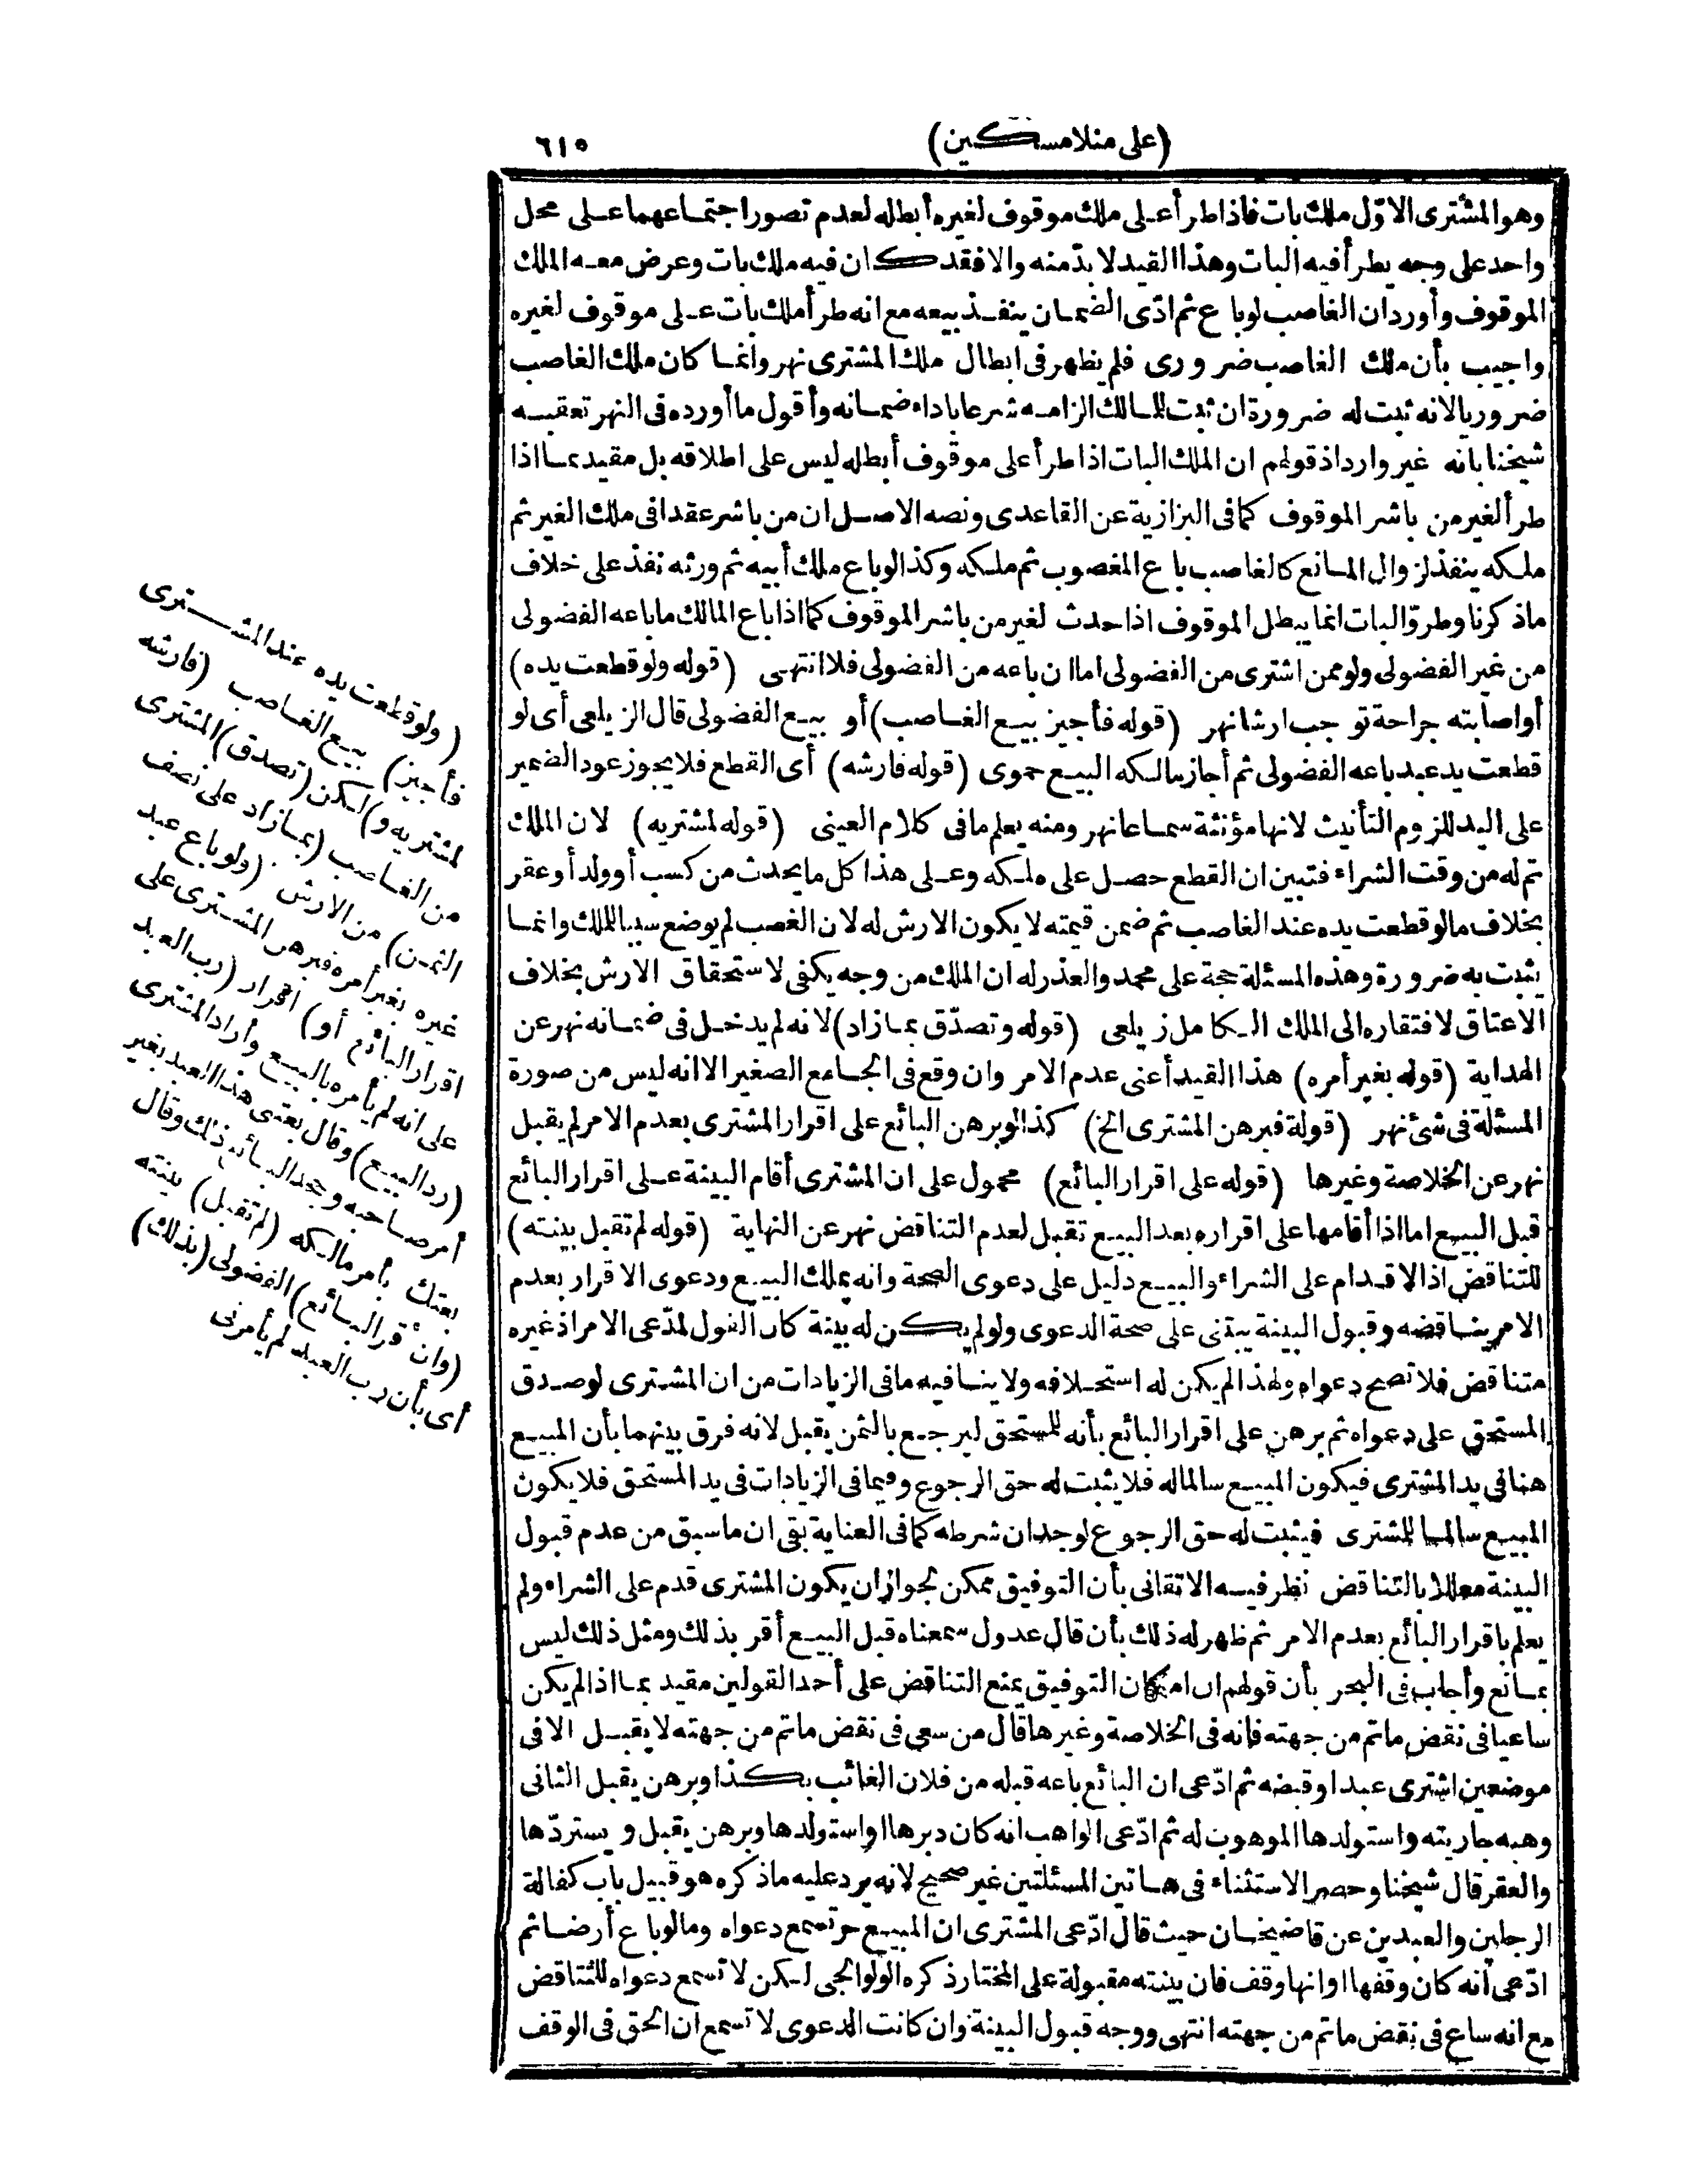 (على منلا مسكين)
٦١٥
وهو المشترى الاوّل ملك بات فاذا طرأ على ملك موقوف لغيره أبطله لعدم تصور اجتماعهما على محل
واحد على وجه يطرأ فيه البات وهذا القيد لا بدّ منه والا فقد كان فيه ملك بات وعرض معه الملك
الموقوف وأورد ان الغاصب لو باع ثم ادّى الضمان ينفذ بيعه مع انه طرأ ملك بات على موقوف لغيره
واجيب بأن ملك الغاصب ضرورى فلم يظهر فى ابطال ملك المشترى نهر وانما كان ملك الغاصب
ضروريا لانه ثبت له ضرورة ان ثبت للمالك الزامه شرعا باداء ضمانه وأقول ما أورده فى النهر تعقبه
شيخنا بانه غير وارد اذ قولهم ان الملك البات اذا طرأ على موقوف أبطله ليس على اطلاقه بل مقيد بما اذا
طرأ لغير من باشر الموقوف كما فى البزازية عن القاعدى ونصه الاصل ان من باشر عقدا فى ملك الغير ثم
ملكه ينفذ لزوال المانع كالغاصب باع المغصوب ثم ملكه وكذا لو باع ملك أبيه ثم ورثه نفذ على خلاف
ما ذكرنا وطروّ البات انما يبطل الموقوف اذا حدث لغير من باشر الموقوف كما اذا باع المالك ما باعه الفضولى
من غير الفضولى ولو ممن اشترى من الفضولى اما ان باعه من الفضولى فلا انتهى (قوله ولو قطعت يده)
أو اصابته جراحة توجب ارشا نهر (قوله فأجيز بيع الغاصب) أو بيع الفضولى قال الزيلعى أى لو
قطعت يد عبد باعه الفضولى ثم أجاز مالكه البيع حموى (قوله فارشه) أى القطع فلا يجوز عود الضمير
على اليد للزوم التأنيث لانها مؤنثة سماعا نهر ومنه يعلم ما فى كلام العينى (قوله لمشتريه) لان الملك
تم له من وقت الشراء فتبين ان القطع حصل على ملكه وعلى هذا كل ما يحدث من كسب أو ولد أو عقر
بخلاف ما لو قطعت يده عند الغاصب ثم ضمن قيمته لا يكون الارش له لان الغصب لم يوضع سببا للملك وانما
يثبت به ضرورة وهذه المسئلة حجة على محمد والعذر له ان الملك من وجه يكفى لاستحقاق الارش بخلاف
الاعتاق لافتقاره الى الملك الكامل زيلعى (قوله وتصدّق بما زاد) لانه لم يدخل فى ضمانه نهر عن
الهداية (قوله بغير أمره) هذا القيد أعنى عدم الامر وان وقع فى الجامع الصغير الا انه ليس من صورة
المسئلة فى شئ نهر (قولة فبرهن المشترى الخ) كذا لو برهن البائع على اقرار المشترى بعدم الامر لم يقبل
نهر عن الخلاصة وغيرها (قوله على اقرار البائع) محمول على ان المشترى أقام البينة على اقرار البائع
قبل البيع اما اذا أقامها على اقراره بعد البيع تقبل لعدم التناقض نهر عن النهاية (قوله لم تقبل بينته)
للتناقض اذ الاقدام على الشراء والبيع دليل على دعوى الصحة وانه يملك البيع ودعوى الاقرار بعدم
الامر يناقضه وقبول البينة يبتنى على صحة الدعوى ولو لم يكن له بينة كان القول لمدّعى الامر اذ غيره
متناقض فلا تصح دعواه ولهذا لم يكن له استحلافه ولا ينافيه ما فى الزيادات من ان المشترى لو صدق
المستحق على دعواه ثم برهن على اقرار البائع بأنه للمستحق ليرجع بالثمن يقبل لانه فرق بينهما بأن المبيع
هنا فى يد المشترى فيكون المبيع سالما له فلا يثبت له حق الرجوع وفيما فى الزيادات فى يد المستحق فلا يكون
المبيع سالما للمشترى فيثبت له حق الرجوع لوجدان شرطه كما فى العناية بقى ان ما سبق من عدم قبول
البينة معللا بالتناقض نظر فيه الاتقانى بأن التوفيق ممكن لجواز ان يكون المشترى قدم على الشراء ولم
يعلم باقرار البائع بعدم الامر ثم ظهر له ذلك بأن قال عدول سمعناه قبل البيع أقر بذلك ومثل ذلك ليس
بمانع وأجاب فى البحر بأن قولهم ان امكان التوفيق يمنع التناقض على أحد القولين مقيد بما اذا لم يكن
ساعيا فى نقض ما تم من جهته فانه فى الخلاصة وغيرها قال من سعى فى نقض ما تم من جهته لا يقبل الا فى
موضعين اشترى عبدا وقبضه ثم ادّعى ان البائع باعه قبله من فلان الغائب بكذا وبرهن يقبل الثانى
وهبه جاريته واستولدها الموهوب له ثم ادّعى الواهب انه كان دبرها او استولدها وبرهن يقبل ويستردّها
والعقر قال شيخنا وحصر الاستثناء فى هاتين المسئلتين غير صحيح لانه يرد عليه ما ذكره هو قبيل باب كفالة
الرجلين والعبدين عن قاضيخان حيث قال ادّعى المشترى ان المبيع حر تسمع دعواه وما لو باع أرضا ثم
ادّعى أنه كان وقفها او انها وقف فان بينته مقبولة على المختار ذكره الولوالجى لكن لا تسمع دعواه للتناقض
مع انه ساع فى نقض ما تم من جهته انتهى ووجه قبول البينة وان كانت الدعوى لا تسمع ان الحق فى الوقف
(ولو قطعت يده عند المشترى
فأجيز) بيع الغاصب (فارشه
لمشتريه و) لكن (تصدق) المشترى
من الغاصب (بما زاد على نصف
الثمن) من الارش (ولو باع عبد
غيره بغير أمره فبرهن المشترى على
اقرار البائع أو) اقرار (رب العبد
على انه لم يأمره بالبيع وأراد المشترى
(رد البيع) وقال بعتنى هذا العبد بغير
أمر صاحبه وجحد البائع ذلك وقال
بعتك بأمر مالكه (لم تقبل) بينته
(وان أقر البائع) الفضولى (بذلك)
أى بأن رب العبد لم يأمرنى